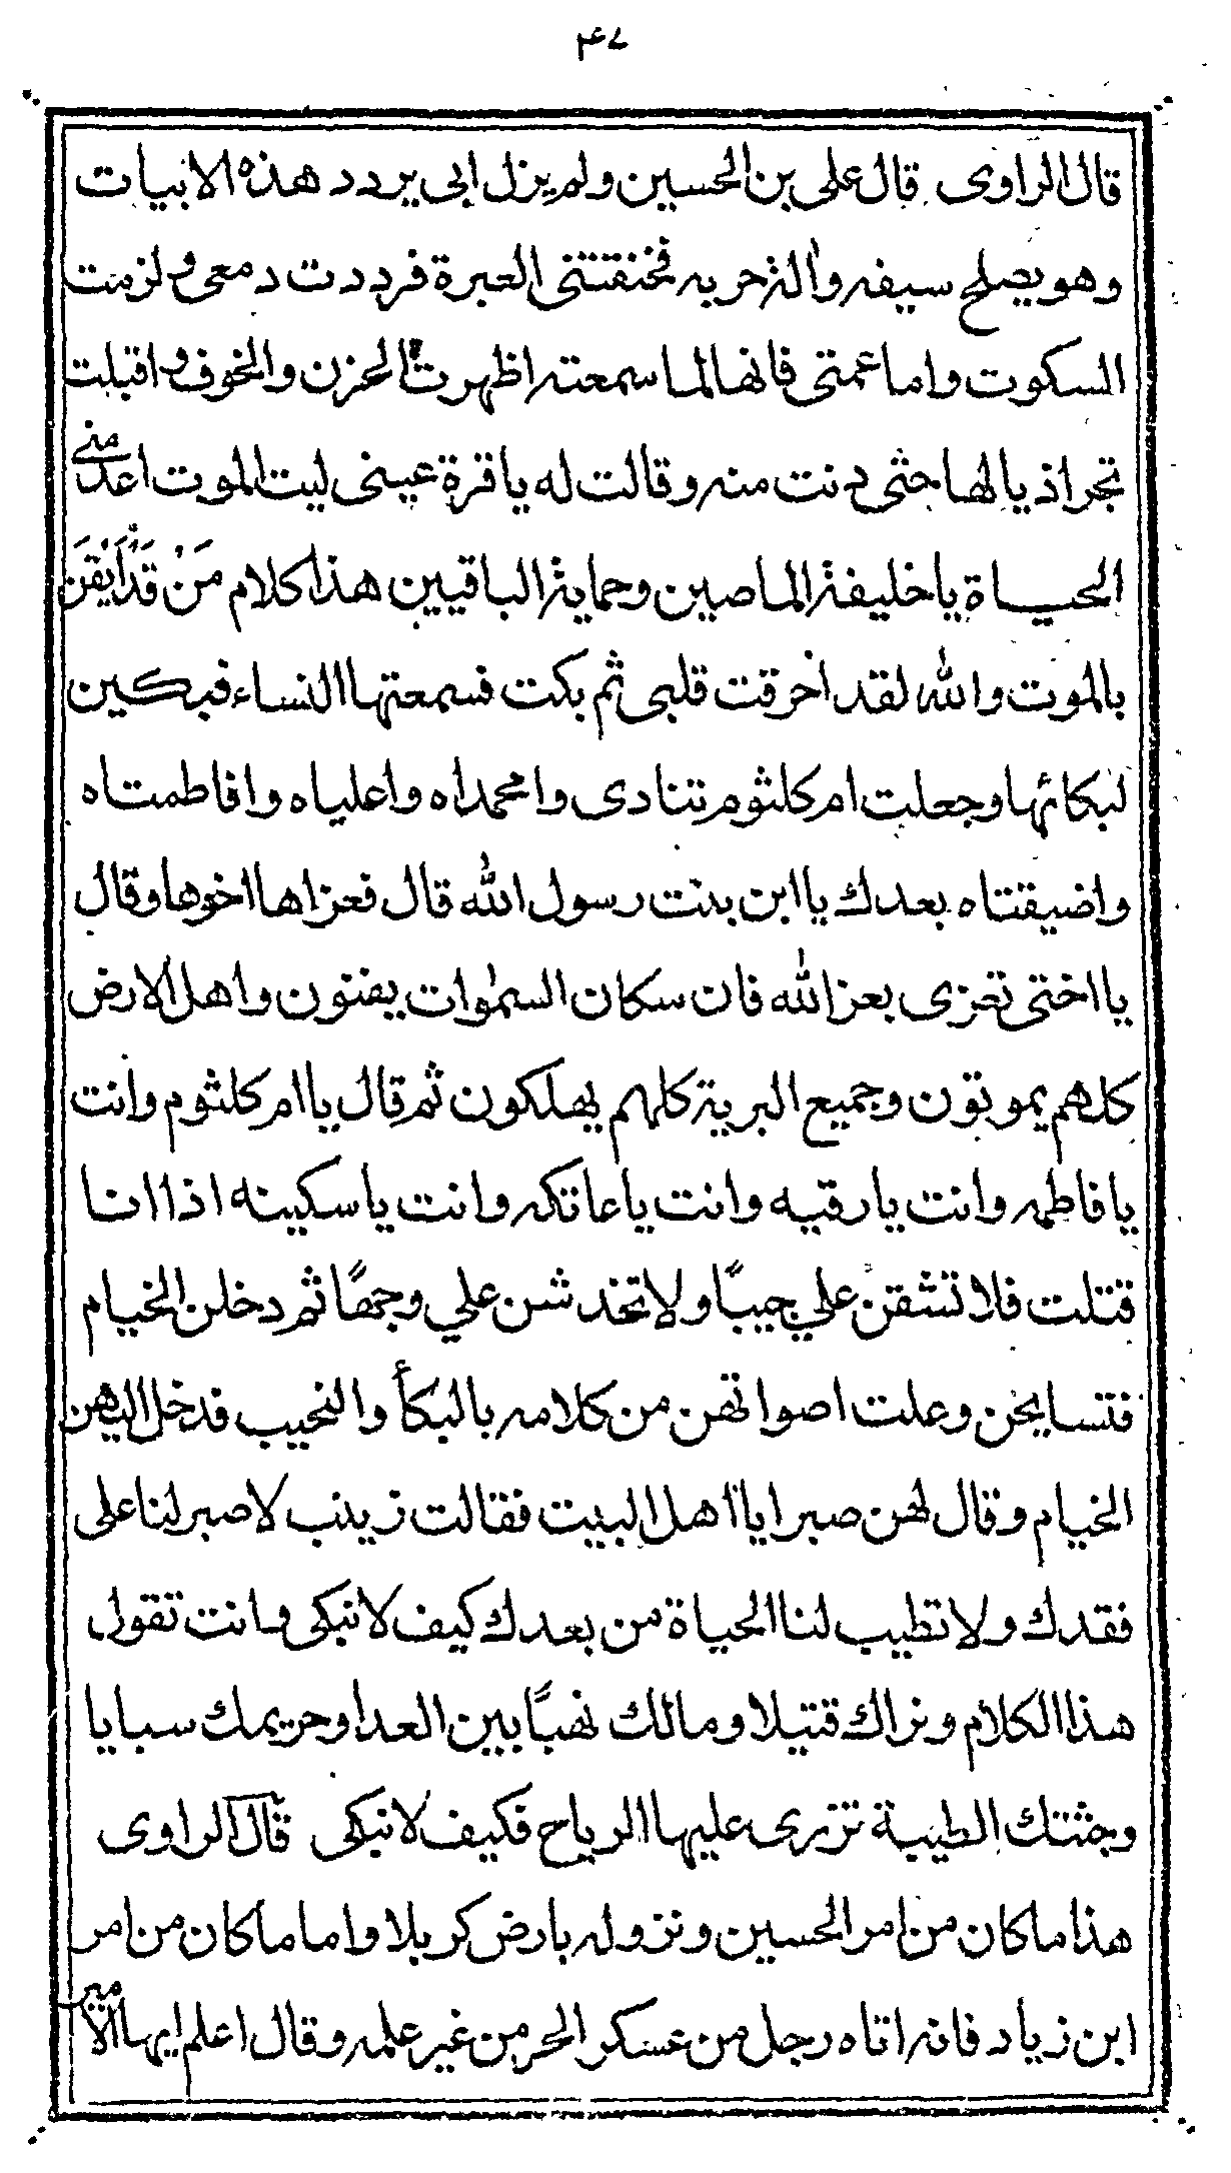 ٤٧
قال الراوى قال على بن الحسين ولم يزل ابى يردد هذه الابيات
وهو يصلح سيفه والة حربه فخنقتنى العبرة فرددت دمعى ولزمت
السكوت واما عمتى فانها لما سمعته اظهرت الحزن والخوف واقبلت
تجر اذيالها حتى دنت منه وقالت له يا قرة عينى ليت الموت اعدمنى
الحياة يا خليفة الماضين وحماية الباقيين هذا كلام مَنْ قَدْ اَيْقَنَ
بالموت والله لقد احرقت قلبى ثم بكت فسمعتها النساء فبكين
لبكائها وجعلت ام كلثوم تنادى وامحمداه واعلياه وافاطمتاه
واضيقتاه بعدك يا ابن بنت رسول الله قال فعزاها اخوها وقال
يا اختى تعزى بعز الله فان سكان السموات يفنون واهل الارض
كلهم يموتون وجميع البرية كلهم يهلكون ثم قال يا ام كلثوم وانت
يا فاطمه وانت يا رقيه وانت يا عاتكه وانت يا سكينه اذا انا
قتلت فلا تشقن علي جيبًا ولا تخدشن علي وجهًا ثم دخلن الخيام
فتسايحن وعلت اصواتهن من كلامه بالبكأ والنحيب فدخل اليهن
الخيام وقال لهن صبرا يا اهل البيت فقالت زينب لا صبر لنا على
فقدك ولا تطيب لنا الحياة من بعدك كيف لا نبكى وانت تقول
هذا الكلام ونراك قتيلا ومالك نهبًا بين العدا وحريمك سبايا
وجثتك الطيبة تزرى عليها الرياح فكيف لا نبكى قال الراوى
هذا ما كان من امر الحسين ونزوله بارض كربلا واما ما كان من امر
ابن زياد فانه اتاه رجل من عسكر الحر من غير علمه وقال اعلم ايها الامير